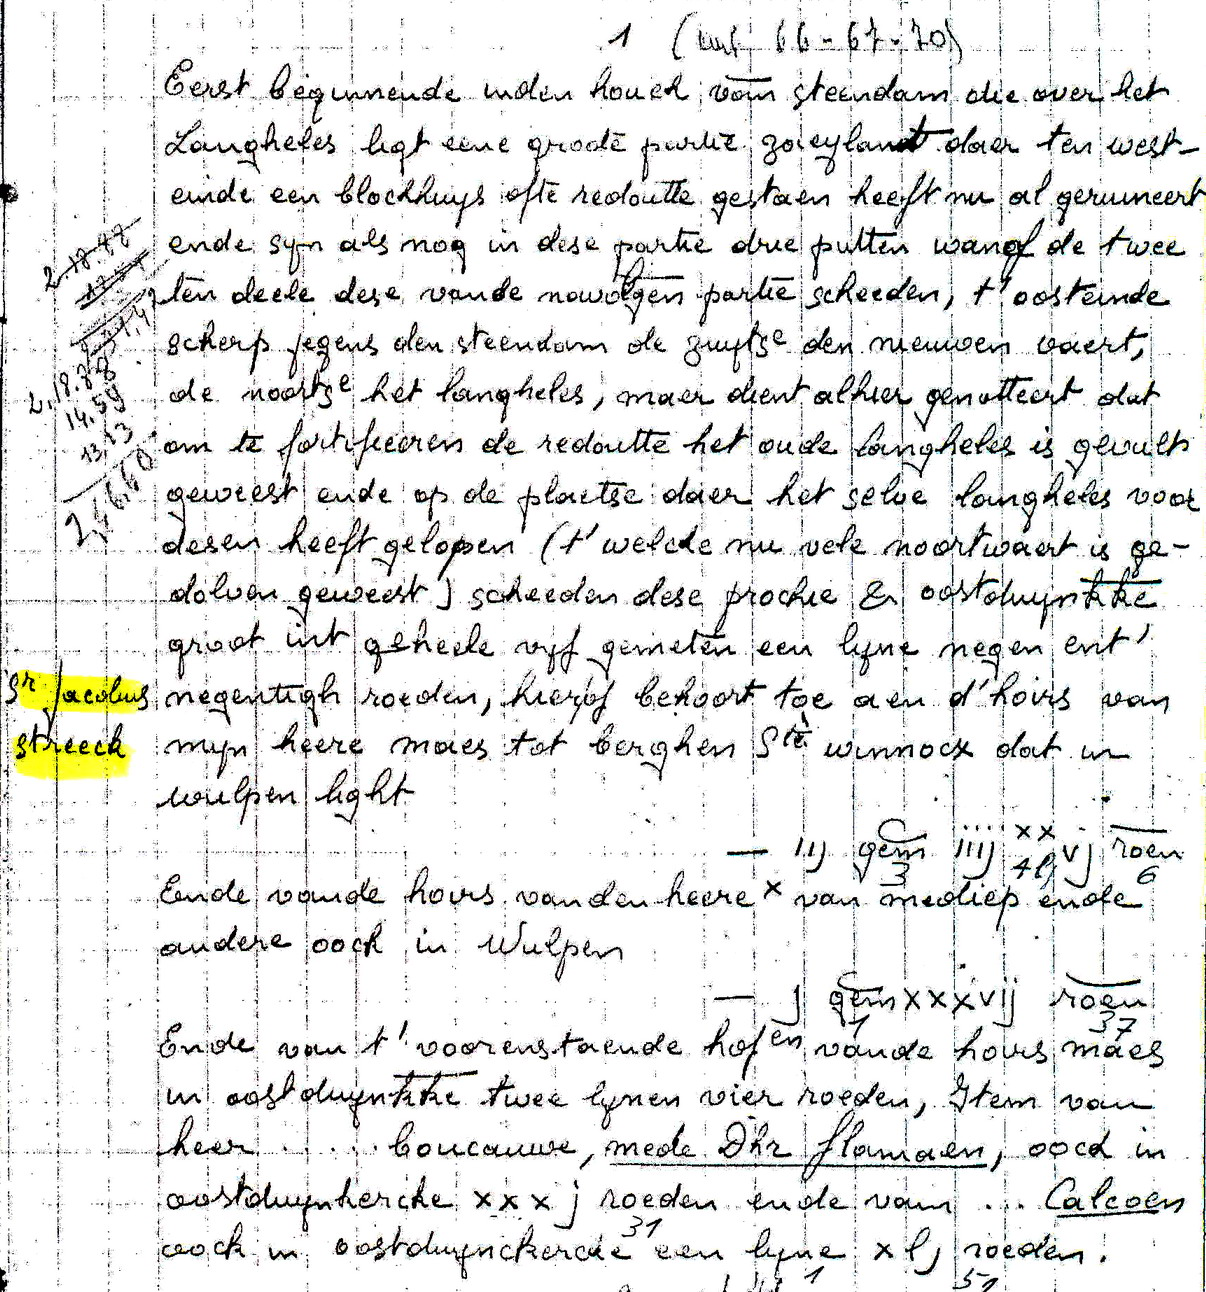 1 (art 66-67-70)
Eerst beginnende inden houck van steendam die over het
Langheles ligt eene groote partie zaeylandt daer ten west-
einde een blockhuys ofte redoutte gestaen heeft nu al geruineert
ende syn als nog in dese partie drie putten wanof de twee
ten deele dese vande navolgen partie scheeden, t'oosteinde
scherp jegens den steendam de zuytse den nieuwen vaert,
de noortse het langheles, maer dient alhier genotteert dat
om te fortifieeren de redoutte het oude langheles is gevult
geweest ende op de plaetse daer het selve langheles voor
desen heeft gelopen (t'welcke nu vele noortwaert is ge-
dolven geweest) scheeden dese prochie & oostduynkke
groot int geheele vyf gemeten een lyne negen ent'
negentigh roeden, hierof behoort toe aen d'hoirs van
myn heere maes tot berghen Ste winnocx dat in
wulpen light
— iij gem iiij xx vj roen
3 6
Ende vande hoirs vanden heere x van mediep ende
andere oock in Wulpen
— j gem xxxvij roen
1 37
Ende van t'voorenstaende hofen vande hoirs maes
in oostduynkke twee lynen vier roeden, Item van
heer ..... boucauwe, mede Dhr flamaen, oock in
oostduynkercke xxxj roeden ende vam ... Calcoen
31
oock in oostduynckercke een lyne xlj roeden.
1 51
Sr Jacobus
streeck
2.18.88
14.59
13.13
2,66,60